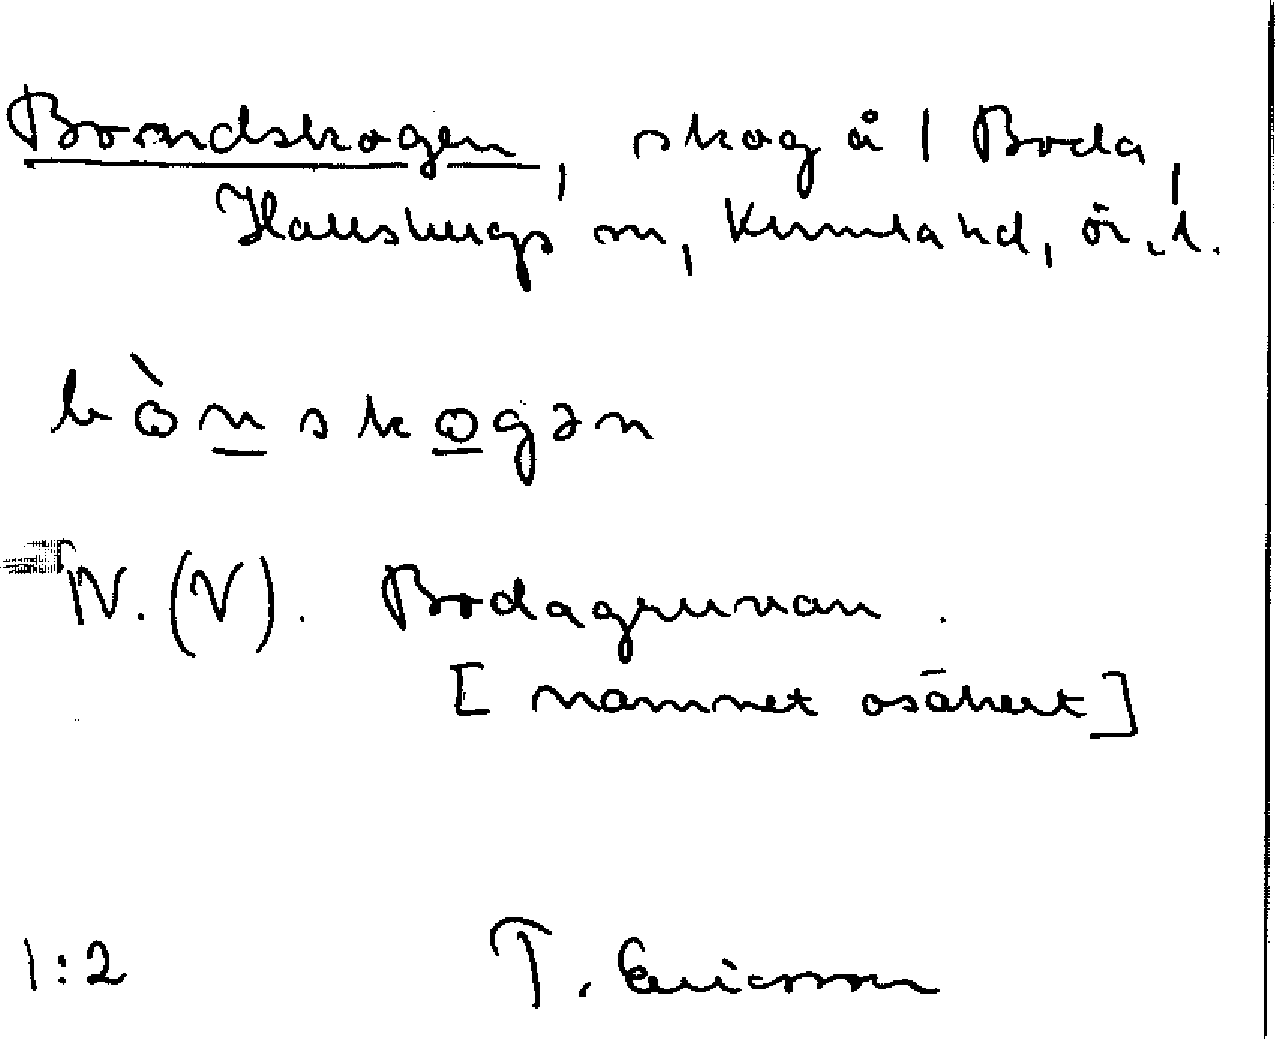 Bondskogen, skog å 1 Boda,
Hallsbergs sn, Kumla hd, ör. l.
bònskogən
IV. (V). Bodagruvan.
[namnet osäkert]
1:2 T. Ericsson